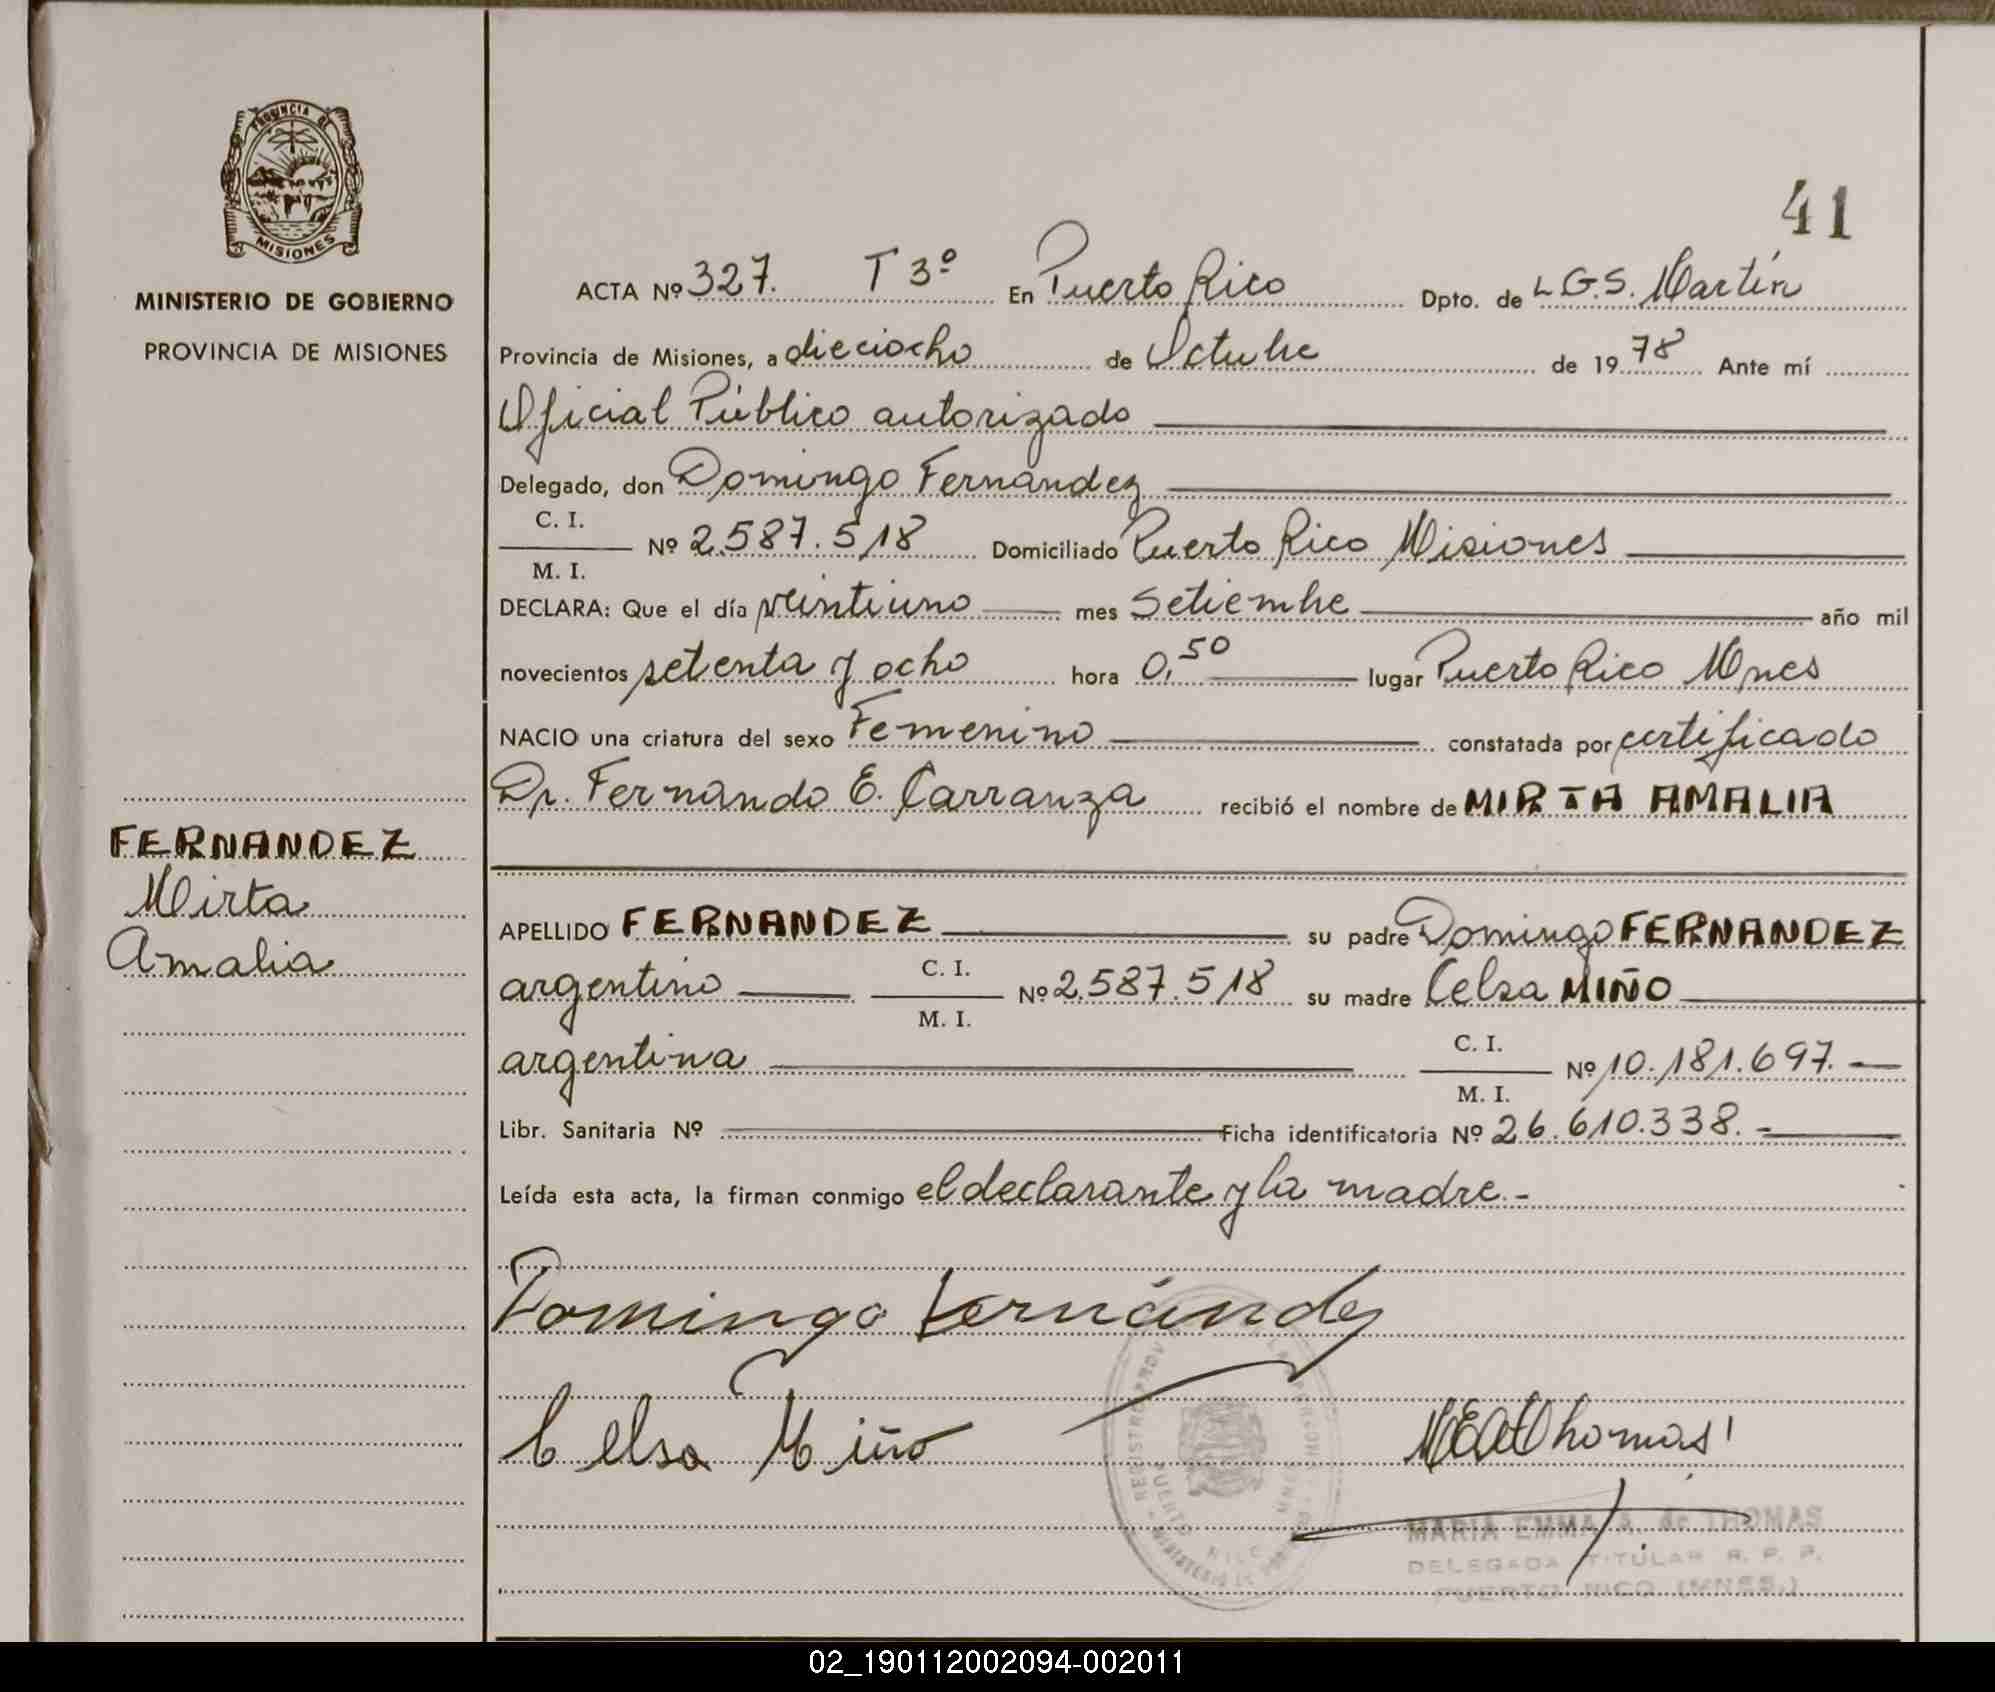 PROVINCIA DE
MISIONES
MINISTERIO DE GOBIERNO
PROVINCIA DE MISIONES
FERNANDEZ
Mirta
Amalia
41
ACTA Nº 327. T 3º En Puerto Rico Dpto. de L.G.S. Martín
Provincia de Misiones, a dieciocho de Octubre de 1978 Ante mí
Oficial Público autorizado
Delegado, don Domingo Fernandez
C. I.
M. I. Nº 2.587.518 Domiciliado Puerto Rico Misiones
DECLARA: Que el día veintiuno mes Setiembre año mil
novecientos setenta y ocho hora 0,50 lugar Puerto Rico Mnes
NACIO una criatura del sexo Femenino constatada por certificado
Dr. Fernando E. Carranza recibió el nombre de MIRTA AMALIA
APELLIDO FERNANDEZ su padre Domingo FERNANDEZ
argentino C. I. M. I. Nº 2.587.518 su madre Celsa MIÑO
argentina C. I. M. I. Nº 10.181.697.
Libr. Sanitaria Nº Ficha identificatoria Nº 26.610.338.-
Leída esta acta, la firman conmigo el declarante y la madre.-
Domingo Fernández
Celsa Miño
MEAdThomas
MARIA EMMA A. de THOMAS
DELEGADA TITULAR R. P. P.
PUERTO RICO (MNES.)
02_190112002094-002011